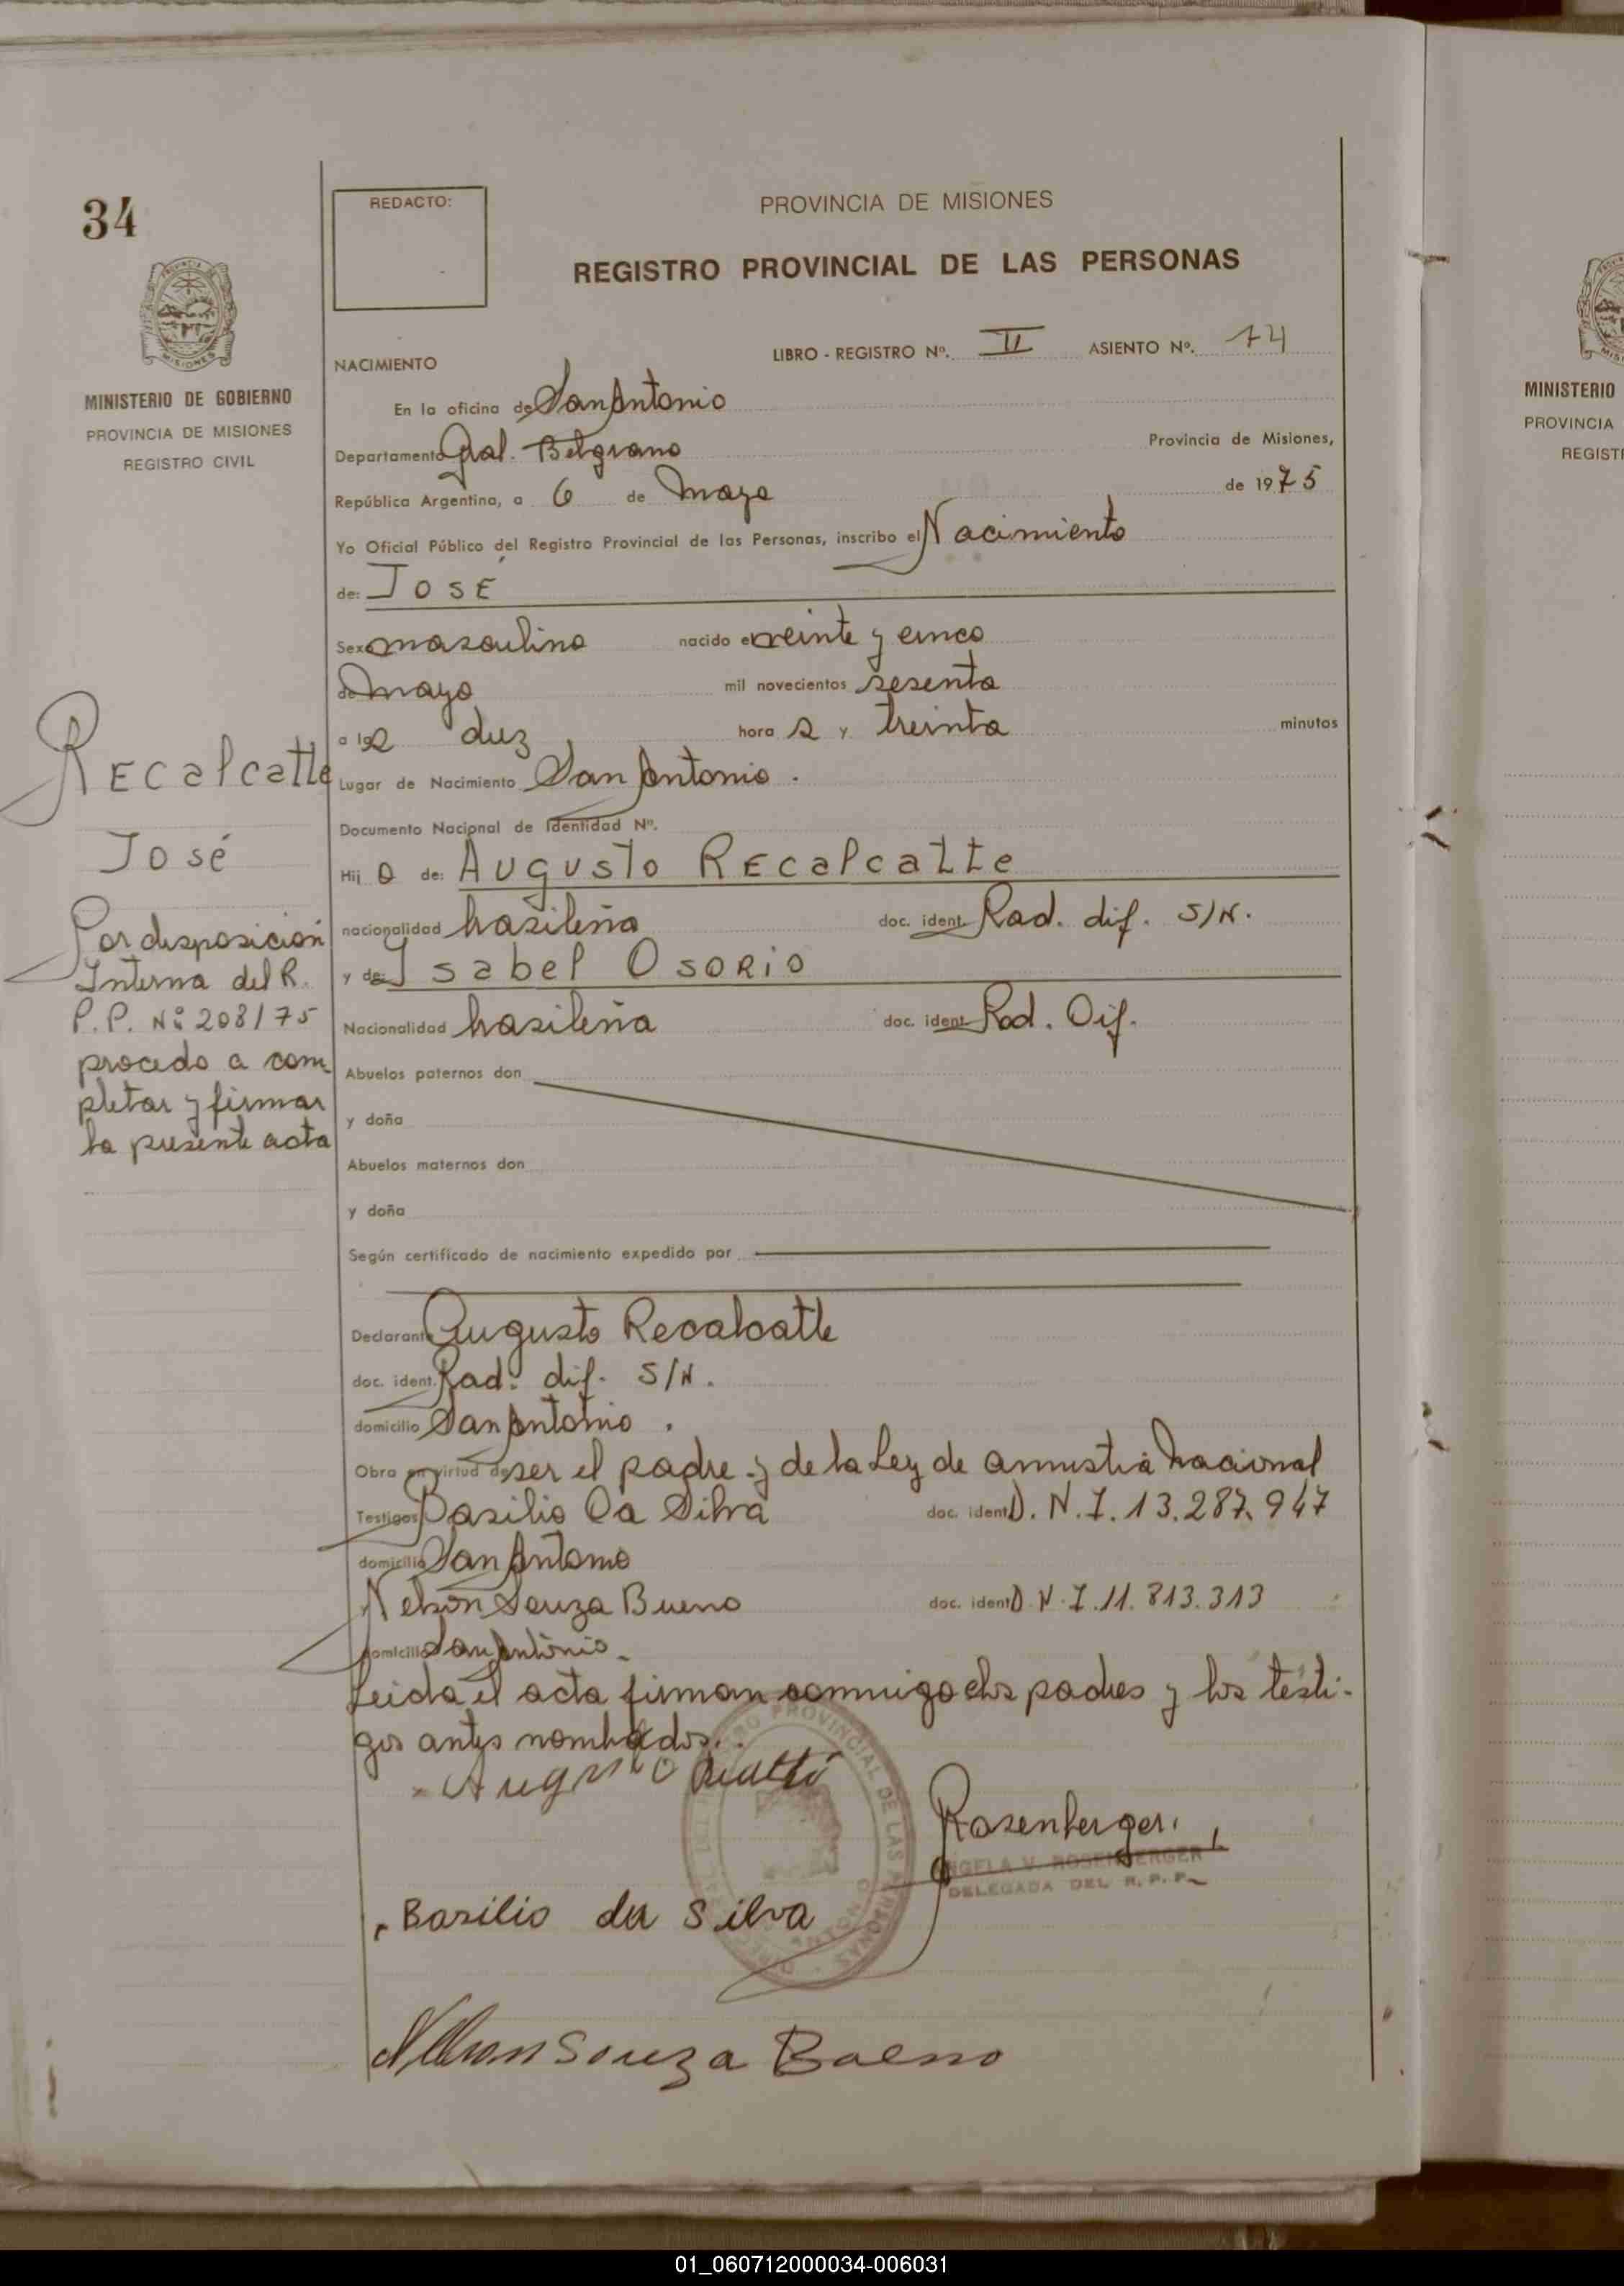 34
REDACTO:
PROVINCIA DE MISIONES
REGISTRO PROVINCIAL DE LAS PERSONAS
MINISTERIO DE GOBIERNO
PROVINCIA DE MISIONES
REGISTRO CIVIL
NACIMIENTO
LIBRO - REGISTRO Nº. II ASIENTO Nº. 74
En la oficina de San Antonio
Departamento Gral. Belgrano Provincia de Misiones,
República Argentina, a 6 de Mayo de 1975
Yo Oficial Público del Registro Provincial de las Personas, inscribo el Nacimiento
de: JOSÉ
Sexo masculino nacido el veinte y cinco
de mayo mil novecientos sesenta
a las diez hora s y treinta minutos
Lugar de Nacimiento San Antonio.
Documento Nacional de Identidad Nº.
Hij o de: Augusto Recalcatte
nacionalidad brasileña doc. ident. Rad. dif. S/N.
y de: Isabel Osorio
Nacionalidad brasileña doc. ident. Rad. Dif.
Abuelos paternos don
y doña
Abuelos maternos don
y doña
Según certificado de nacimiento expedido por
Declarante Augusto Recalcatte
doc. ident. Rad. dif. S/N.
domicilio San Antonio.
Obra en virtud de ser el padre y de la Ley de amnistia nacional
Testigos Basilio Da Silva doc. ident D.N.I. 13.287.947
domicilio San Antonio
Nelson Souza Bueno doc. ident D.N.I. 11.813.313
domicilio San Antonio.
Leida el acta firman conmigo los padres y los testi-
gos antes nombrados.
Recalcatte
José
Por disposicion
Interna del R.
P.P. Nº 208/75
procedo a com
pletar y firmar
la presente acta
Augusto
Rosenberger
ANGELA V. ROSENBERGER
DELEGADA DEL R.P.P.
REGISTRO PROVINCIAL DE LAS PERSONAS
Basilio da Silva
Nelson Souza Bueno
MINISTERIO
PROVINCIA
REGIST
01_060712000034-006031